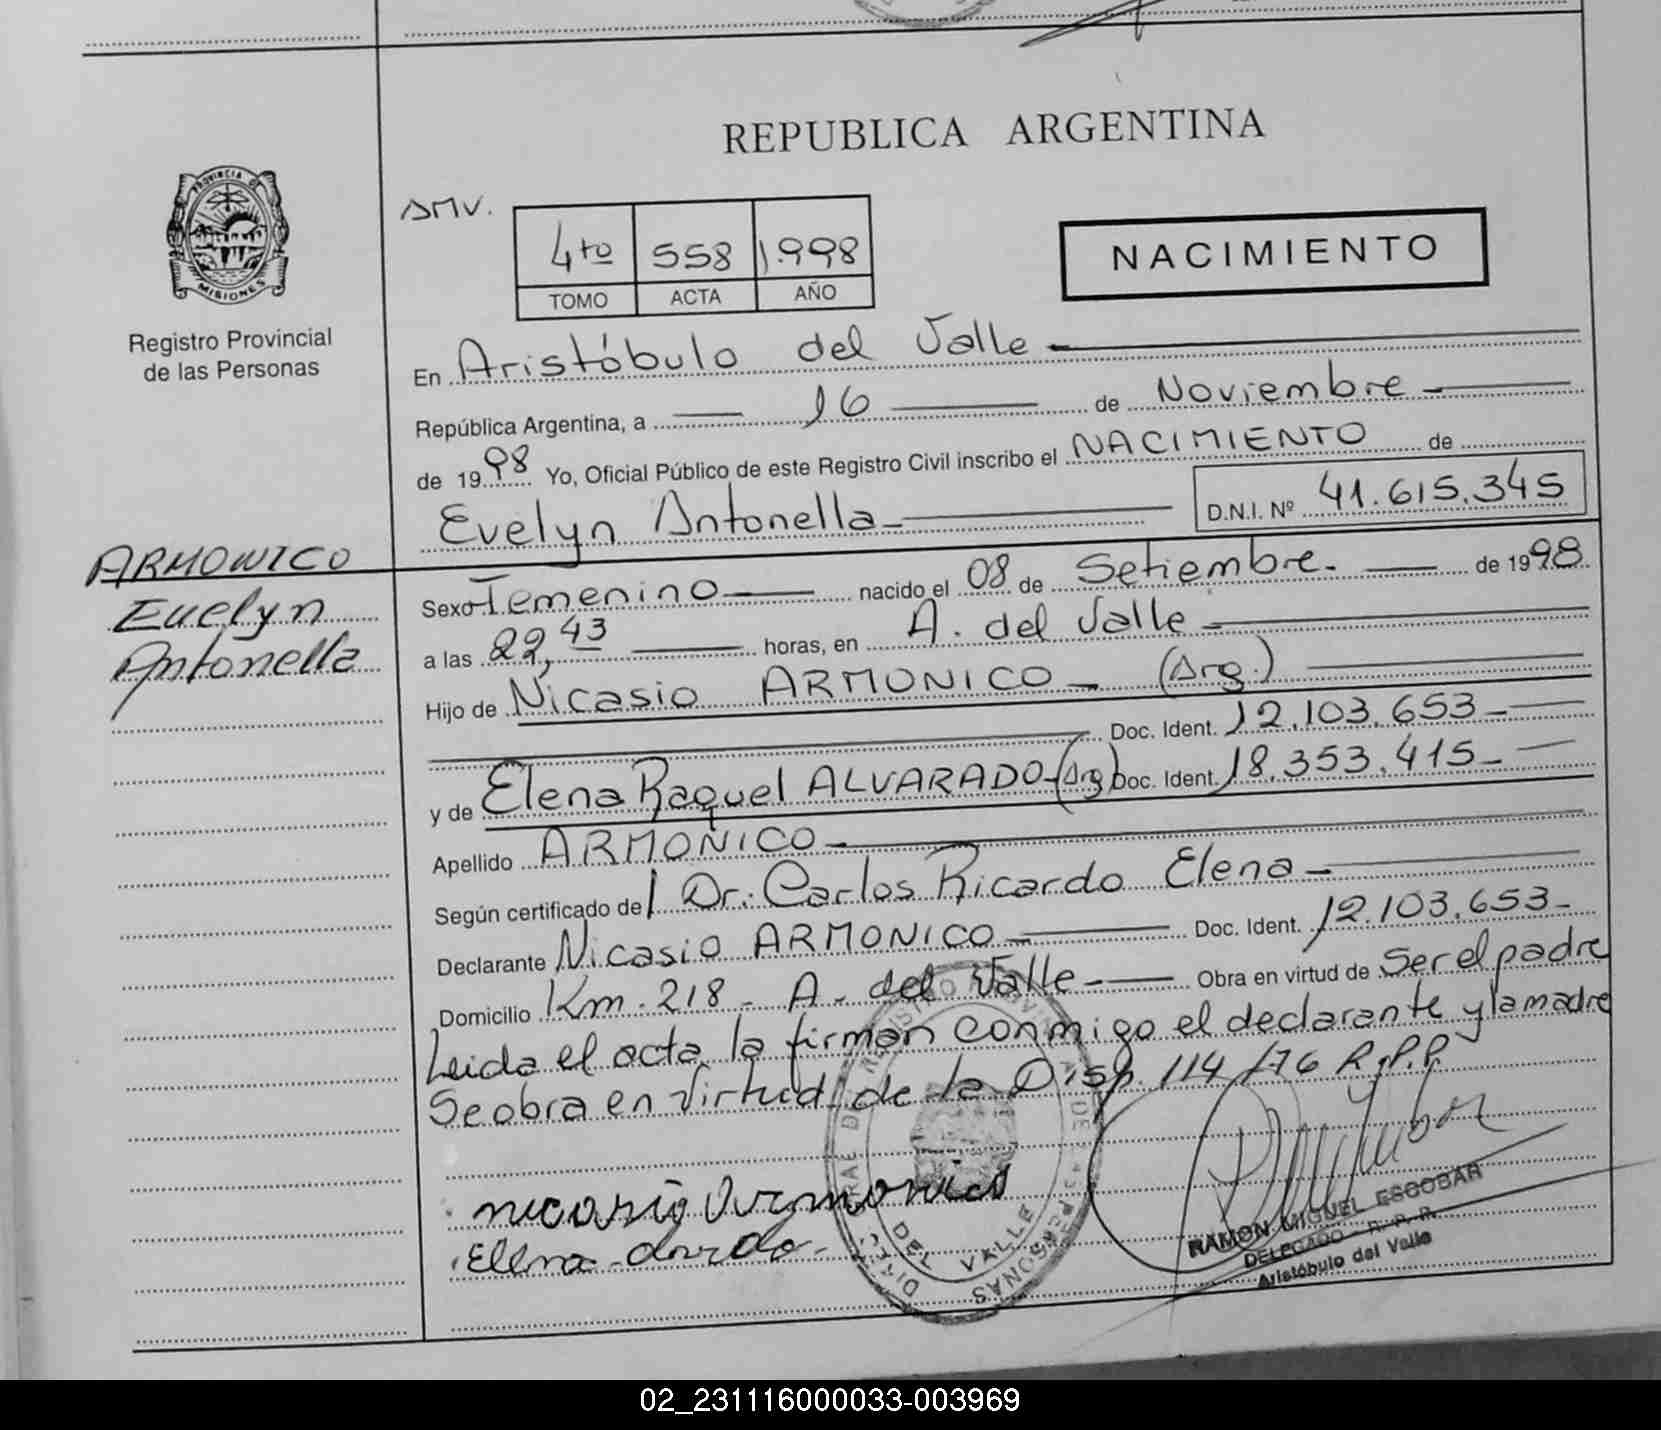 REPUBLICA ARGENTINA
PROVINCIA DE
MISIONES
Registro Provincial
de las Personas
AMV.
4to 558 1.998
TOMO ACTA AÑO
NACIMIENTO
En Aristóbulo del Valle
República Argentina, a 16 de Noviembre
de 1998 Yo, Oficial Público de este Registro Civil inscribo el NACIMIENTO de
Evelyn Antonella D.N.I. Nº 41.615.345
ARMONICO
Evelyn
Antonella
Sexo Femenino nacido el 08 de Setiembre. de 1998
a las 22,43 horas, en A. del Valle
Hijo de Nicasio ARMONICO (Arg.)
Doc. Ident. 12.103.653
y de Elena Raquel ALVARADO (Arg) Doc. Ident. 18.353.415
Apellido ARMONICO
Según certificado del Dr. Carlos Ricardo Elena
Declarante Nicasio ARMONICO Doc. Ident. 12.103.653
Domicilio Km. 218 - A. del Valle Obra en virtud de Ser el padre
Leida el acta, la firman conmigo el declarante y la madre
Se obra en virtud de la Disp. 114/76 R.P.P.
DEL VALLE
PERSONAS
RAMON MIGUEL ESCOBAR
DELEGADO - R. P. P.
Aristóbulo del Valle
02_231116000033-003969